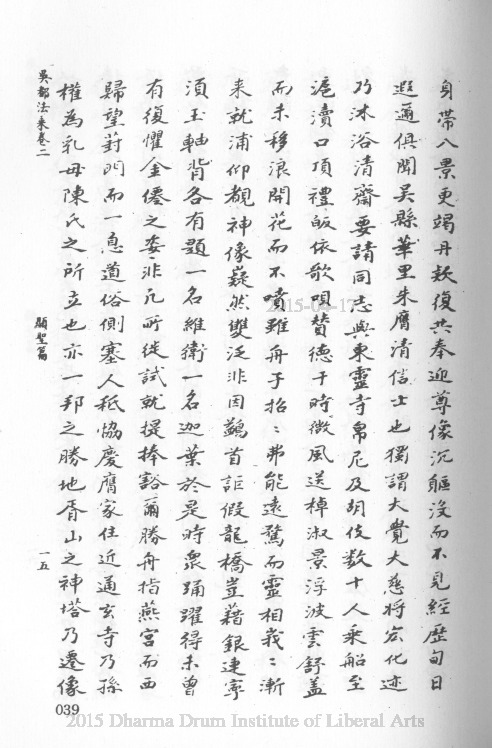 身帶八景更竭丹欵復共奉迎尊像沉軀沒而不見經歷旬日
遐邇俱聞吴縣華里朱膺清信士也獨謂大覺大慈将宏化迹
乃沐浴清齋要請同志與東靈寺帛尼及胡伎数十人乘船至
滬瀆口頂禮皈依歌唄賛徳于時微風送棹淑景浮波雲舒盖
而未移浪開花而不噴雖舟子招〻弗能遠騖而靈相峩〻漸
来就浦仰覩神像嶷然雙泛非因鷁首詎假龍橋豈藉銀連寧
湏玉軸背各有題一名維衛一名迦葉於是時衆踊躍得未曽
有復懼金僊之姿非凡所徙試就提捧豁爾勝舟指燕宫而西
歸望葑門而一息道俗側塞人秖恊慶膺家住近通玄寺乃孫
權為乳母陳氏之所立也亦一邦之勝地胥山之神塔乃遷像
吳都法乘卷二
顯聖篇
一五
039
2015-04-17
2015 Dharma Drum Institute of Liberal Arts